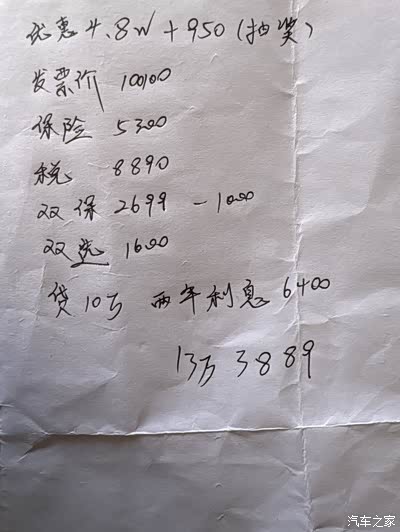 优惠 4.8W + 950 (抽奖)
发票价 100100
保险 5300
税 8890
双保 2699 - 1000
双选 1600
贷10万 两年利息 6400
13万 3889
汽车之家